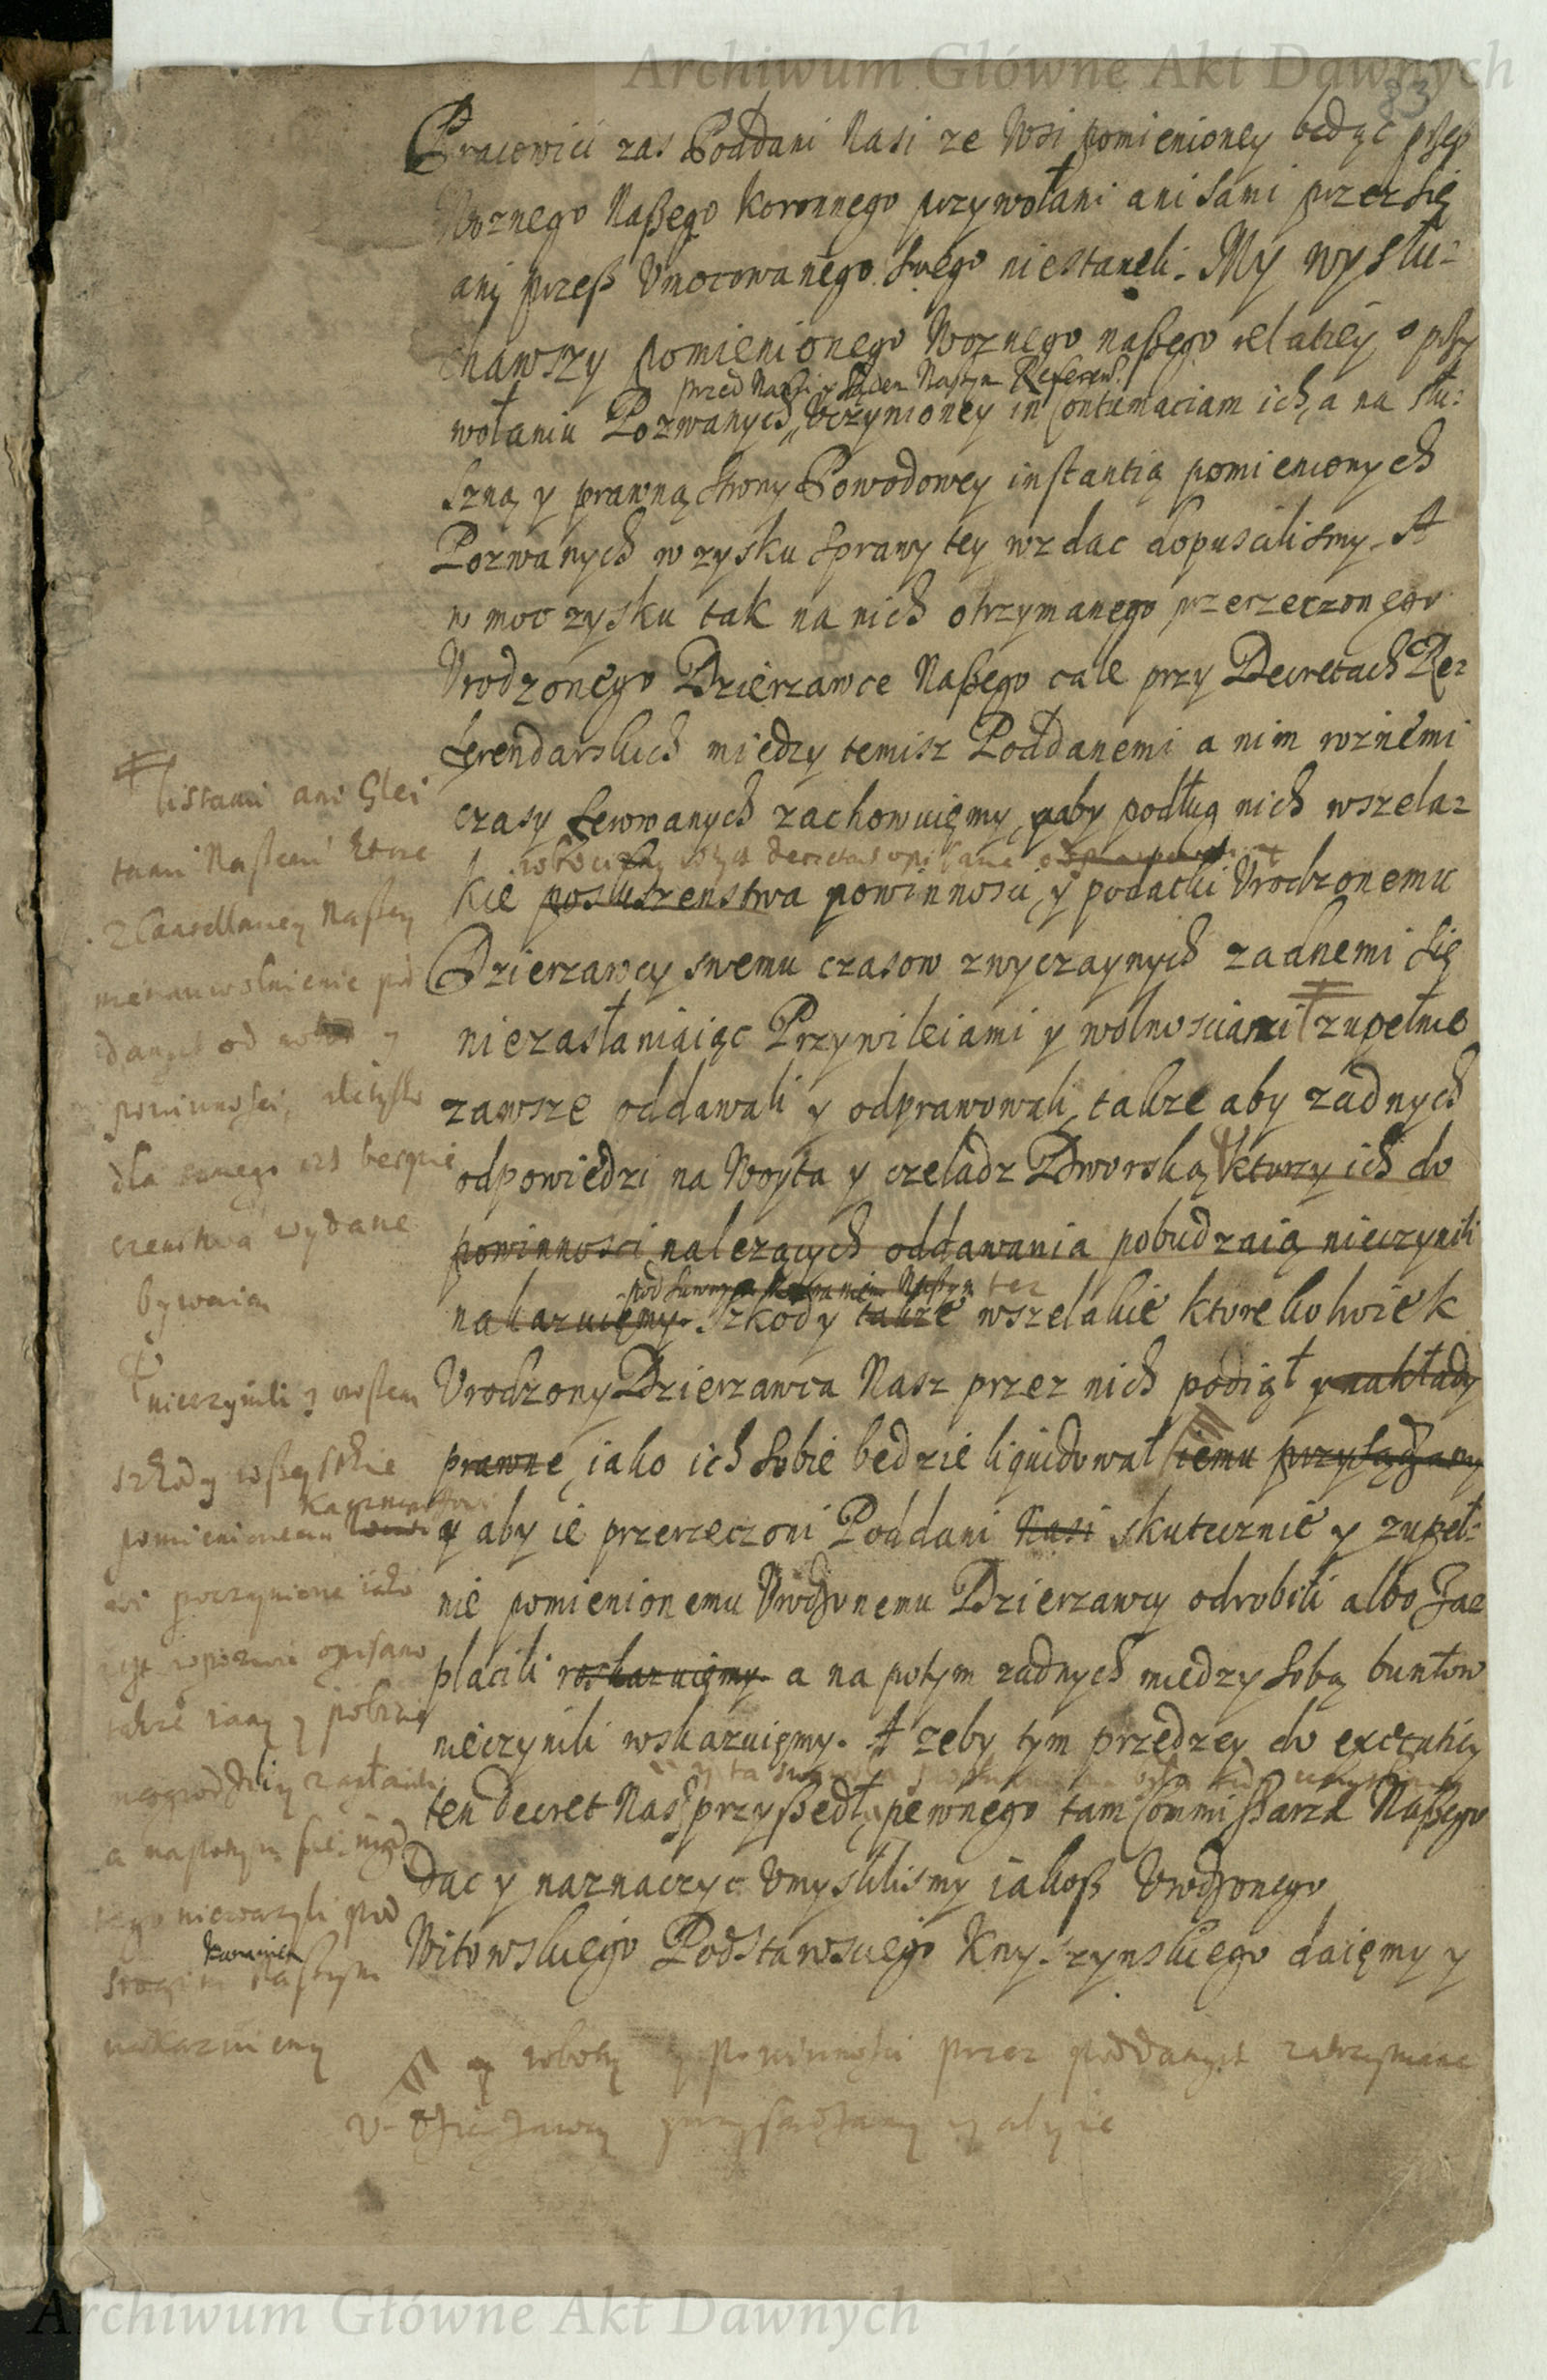 Archiwum Główne Akt Dawnych
83
Pracowici zas Poddani Nasi ze Wsi pomienioney będąc przez
Woznego Naßego Koronnego przywołani ani sami przez się
ani przeß Vmocowanego swego niestaneli. My wysłu-
chawszy pomienionego Woznego naßego relatiey o przy
przed Nami y Sądem Naszym Referend.
wołaniu Pozwanych, Vczynioney in Contumaciam ich, a na słu-
szną y prawną strony Powodowey instantią pomienionych
Pozwanych w zysku sprawy tey wzdac dopuscilismy. A
w moc zysku tak na nich otrzymanego przerzeczonego
Vrodzonego Dzierzawce Naßego cale przy Decretach Re-
ferendarskich między temisz Poddanemi a nim roznemi
czasy ferowanych zachowuięmy, y aby podług nich wszela-
kie posłuszenstwa powinnosci, y podatki Vrodzonemu
Dzierzawcy swemu czasow zwyczaynych zadnemi się
niezasłaniaiąc Przywileiami y wolnosciami zupełnie
zawsze oddawali y odprawowali, takze aby zadnych
odpowiedzi na Woyta y czeladz Dworską, kturzy ich do
powinnosci nalezących oddawania pobudzaią nieczynili
pod surowym karaniem Naszym tez
nakazuięmy. Szkody takze wszelakie ktorekolwiek
Vrodzony Dzierzawca Nasz przez nich podiął y nakłady
prawne, iako ich sobie bedzie liquidował iemu przysądzamy
y aby ie przerzeczoni Poddani Nasi skutecznie y zupeł-
nie pomienionemu Vrodzonemu Dzierzawcy odrobili albo za-
płacili roskazuięmy. a na potym zadnych miedzy sobą buntow
nieczynili wskazuięmy. A zeby tym prędzey do executiey
ten decret Nasz przyßedł, pewnego tam Commißarza Naßego
dac y naznaczyc Vmyslilismy iakoß Vrodzonego
Witowskiego Podstarosciego Knyszynskiego daięmy y
listami ani Glei
tami Naszemi ktore
z Cancellariey Naszey
nie na uwolnienie pod
danych od robot y
powinnosci, ale tylko
dla samego ich bespie
czenstwa wydane
bywaią
nieczynili y
szkody wszystkie
pomienionemu
Karczmarzowi
poczynione iako
iest w pozwie opisano
takze rany y pobicie
nagrodzili y zapłacili
a napotym się nigdy
tego niewazyli pod
srogim karaniem Naszym
nakazuiemy
roboty y powinnosci przez poddanych zatrzymane
v dzierzawcy przysądzamy y aby ie
Archiwum Główne Akt Dawnych